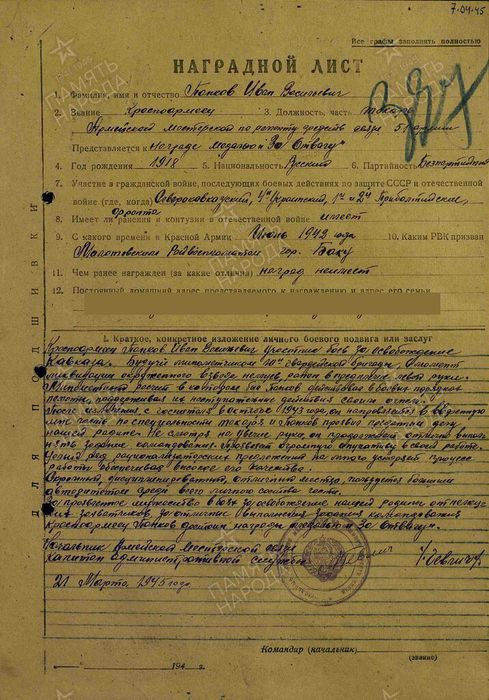 7.04.45
Все графы заполнять полностью
НАГРАДНОЙ ЛИСТ
1. Фамилия, имя и отчество Попков Иван Васильевич
2. Звание Красноармеец 3. Должность, часть токарь
Армейской мастерской по ремонту средств связи 51 армии
Представляется к награде медалью "За Отвагу"
4. Год рождения 1918 5. Национальность Русский 6. Партийность Беспартийный
7. Участие в гражданской войне, последующих боевых действиях по защите СССР и отечественной
войне (где, когда) Северокавказский, 4й Украинский, 1й и 2й Прибалтийские
фронта
8. Имеет ли ранения и контузии в отечественной войне имеет
9. С какого времени в Красной Армии Июнь 1942 года 10. Каким РВК призван
Молотовским Райвоенкоматом гор. Баку
11. Чем ранее награжден (за какие отличия) наград не имеет
12. Постоянный домашний адрес представляемого к награждению и адрес его семьи
I. Краткое, конкретное изложение личного боевого подвига или заслуг
Красноармеец Попков Иван Васильевич участник боев за освобождение
Кавказа. Будучи пулеметчиком гвардейской бригады, в момент
ликвидации окруженного взвода немцев ранен левой руки.
расчет в котором был Попков действовал в боевых порядках
пехоты, поддерживая их наступательные действия своим огнем.
После излечения с госпиталя в октябре 1943 года, он направляется в
часть по специальности токаря и Попков проявил преданность делу
нашей родине. Не смотря на увечье руки, он продолжает отлично выпол-
нять задания командования в своей работе.
рационализаторских предложений на много ускорил процесс
работы обеспечивая высокое его качество.
дисциплинированный, отличный мастер, пользуется большим
авторитетом среди всего личного состава части.
За проявленное мужество в боях за освобождение нашей родины от немец-
ких захватчиков, за отличное выполнение задания командования
Красноармеец Попков достоин награды медалью "За Отвагу".
Начальник Армейской Мастерской связи
Капитан Административной Службы
21 Марта 1945 года
Командир (начальник)
(звание)
194 г.
ДЛЯ ПОДШИВКИ
ПАМЯТЬ НАРОДА